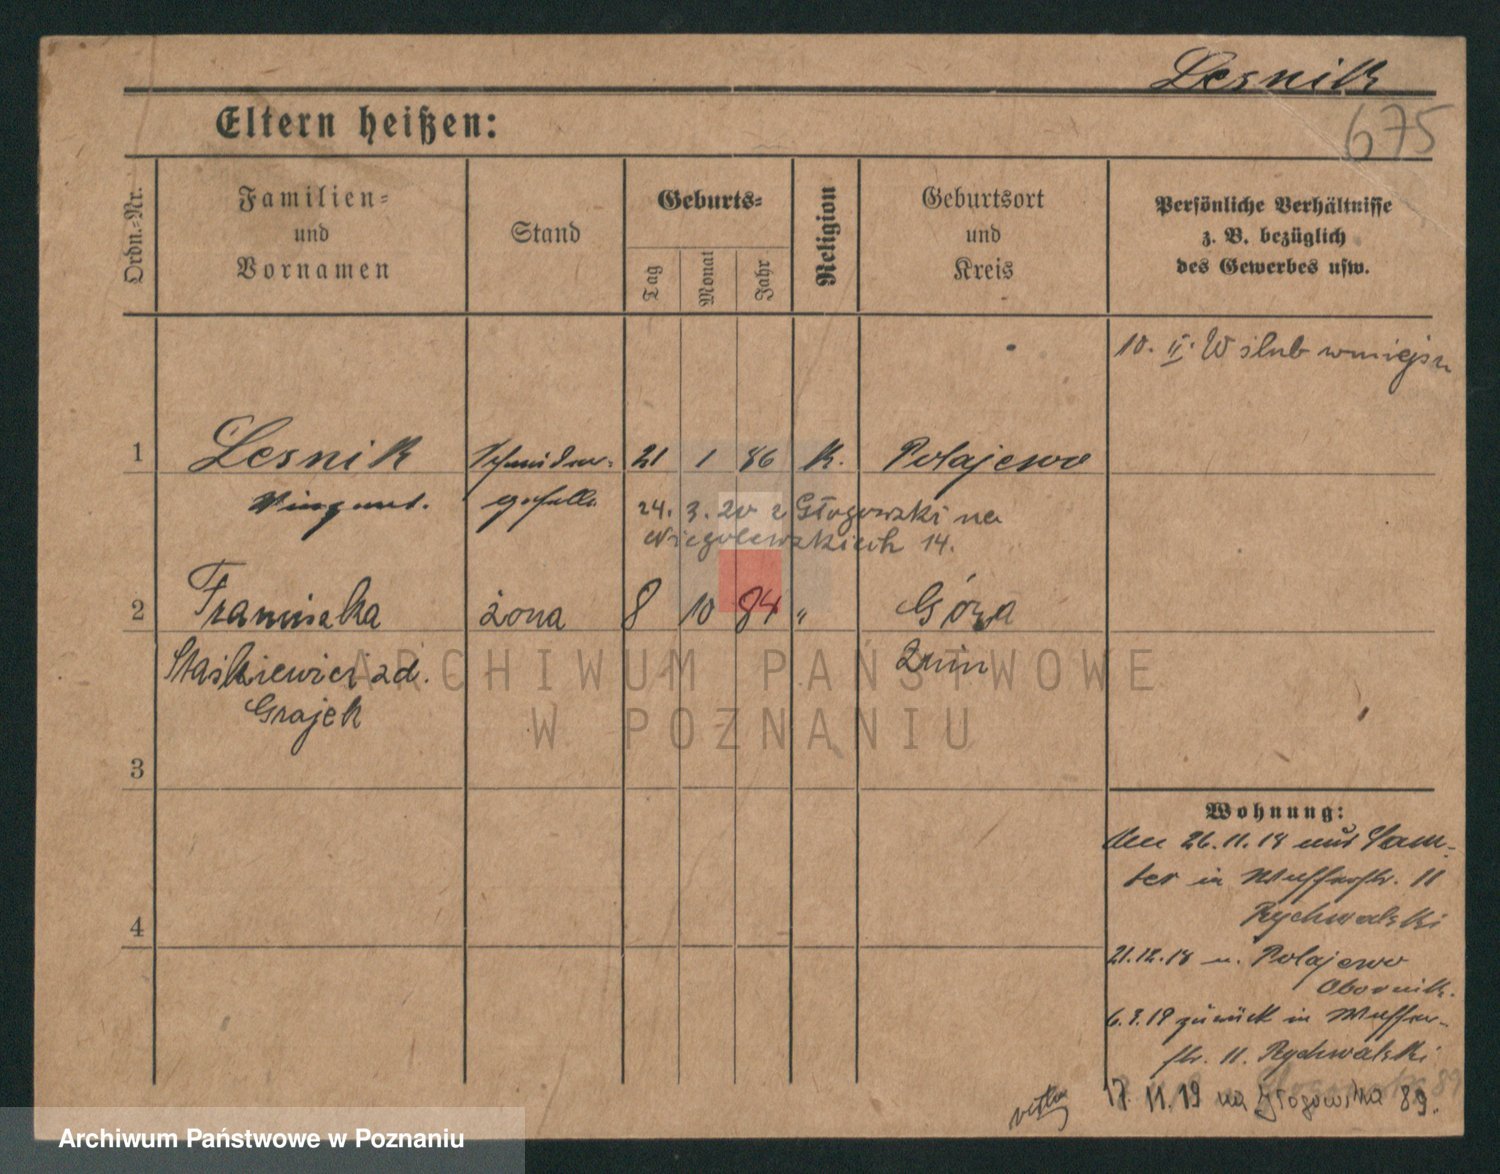 Lesnik
675
Eltern heißen:
Ordn.=Nr.
Familien=
und
Vornamen
Stand
Geburts=
Tag
Monat
Jahr
Religion
Geburtsort
und
Kreis
Persönliche Verhältnisse
z. B. bezüglich
des Gewerbes usw.
10. II. W ślub
1 Lesnik 21 1 86 K. Polajewo
24. 3. 20 z Głogowski na
Niegolewskich 14.
2 Franciszka żona 8 10 84 " Góra
Staśkiewicz zd. Żnin
Grajek
3
4
Wohnung:
26.11.18 aus Sam-
ter in 11
Rychwalski
21.12.18 n. Polajewo
Obornik.
zurück in
str. 11. Rychwalski
17. 11. 19 na Głogowska 89.
ARCHIWUM PAŃSTWOWE
W POZNANIU
Archiwum Państwowe w Poznaniu